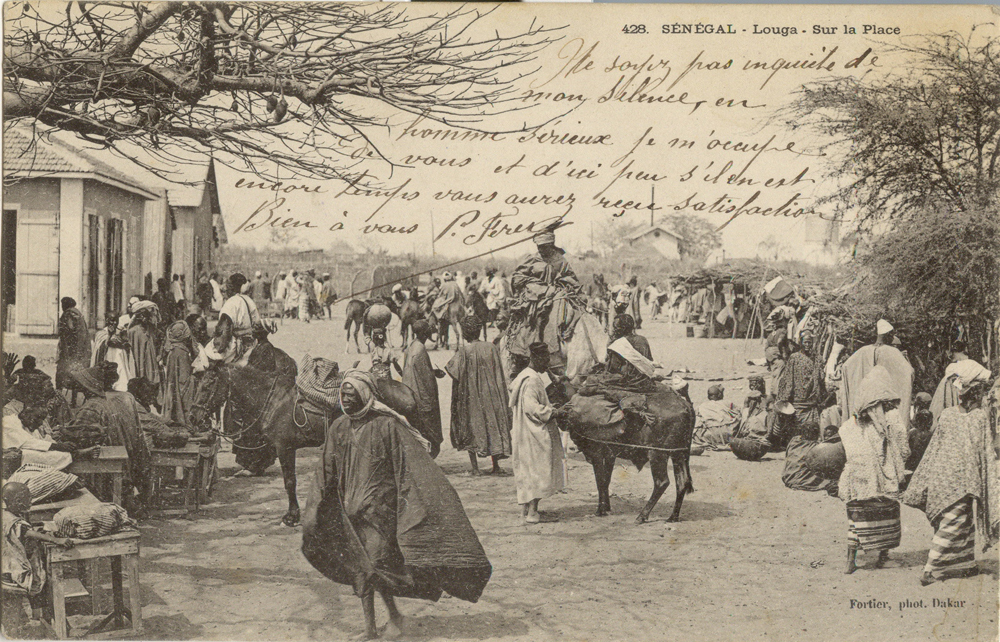 428. SÉNÉGAL - Louga - Sur la Place
Ne soyez pas inquiète de
mon silence, en
homme sérieux je m'occupe
de vous et d'ici peu s'il en est
encore temps vous aurez reçu satisfaction
Bien à vous P.
Fortier, phot. Dakar